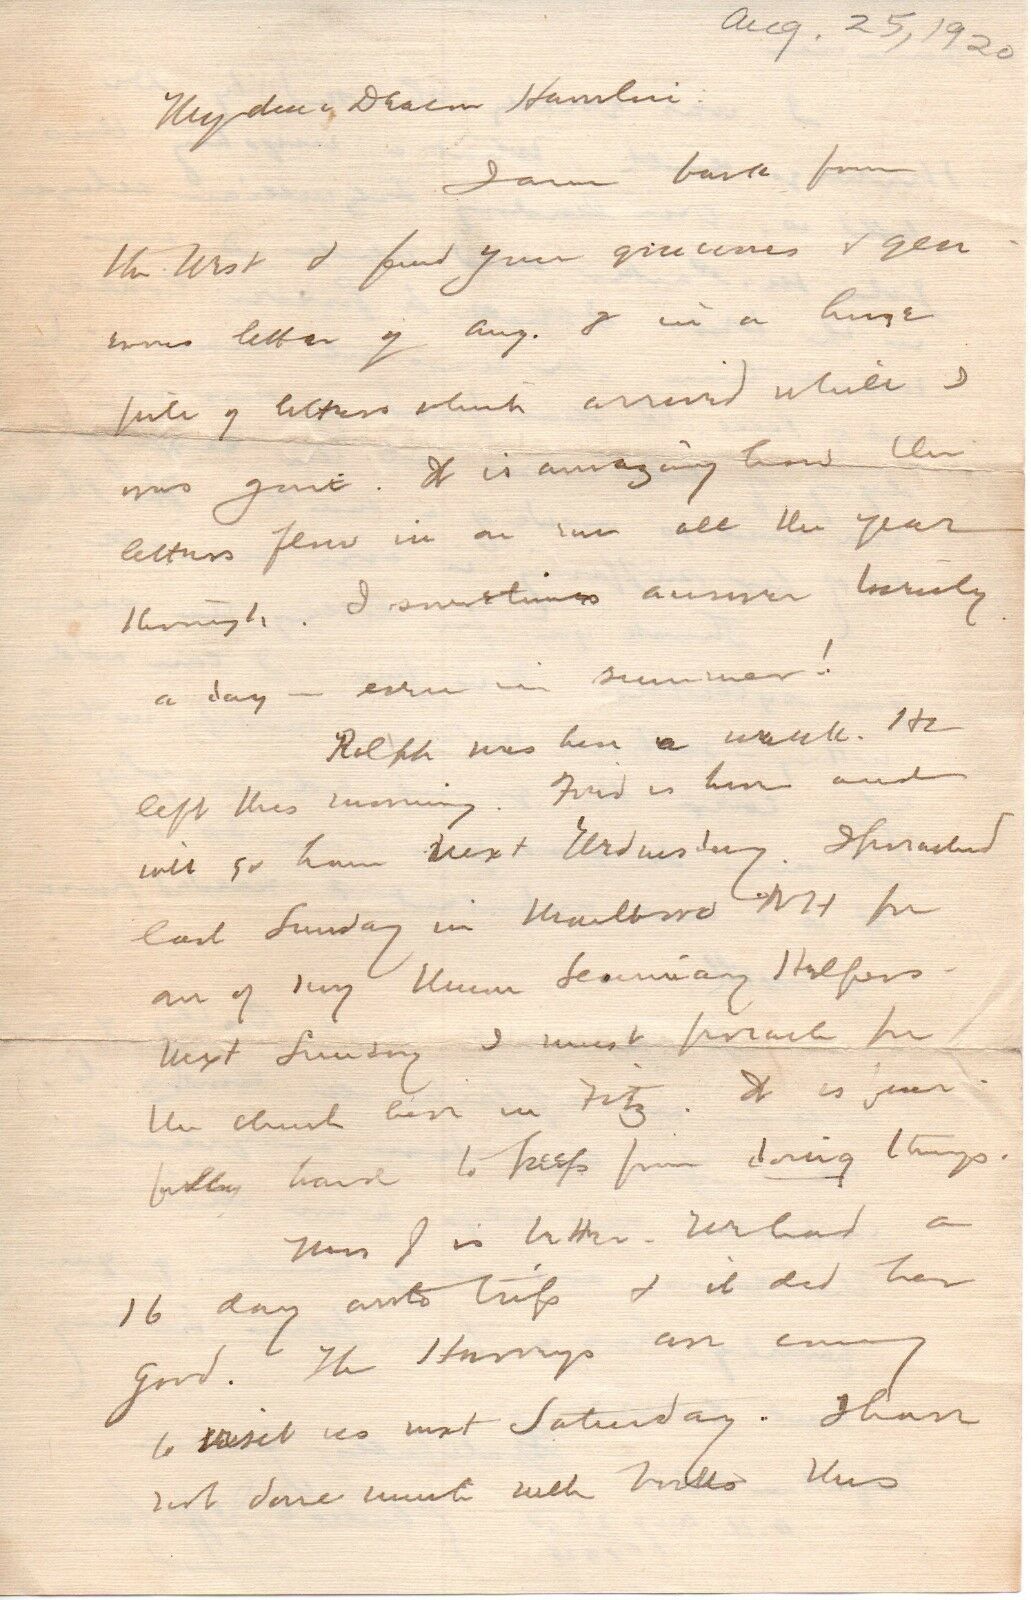 Aug. 25, 1920
My dear Deacon Hamlin:
I am back from
the West & find your gracious & gen-
erous letter of Aug. 8 in a huge
pile of letters which arrived while I
was gone. It is amazing how the
letters flow in on me all the year
through. I sometimes answer twenty
a day — even in summer!
Ralph was here a week. He
left this morning. Fred is here and
will go home next Wednesday. I preached
last Sunday in Marlboro NH for
one of my Union Seminary Helpers.
Next Sunday I must preach for
the church here in Fitz. It is fear-
fully hard to keep from doing things.
Mrs J is better. We had a
16 day auto trip & it did her
good. The Harrys are coming
to visit us next Saturday. I have
not done much with books this